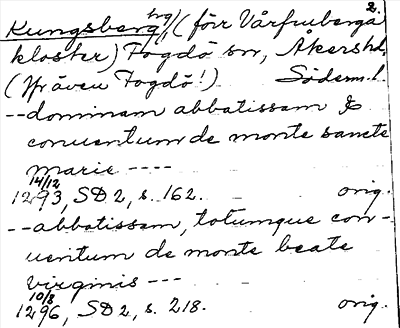 2.
Kungsberg hrg/(förr Vårfruberga
kloster) Fogdö sn, Åkers hd,
(Jfr även Fogdö!) Söderm. l.
--dominam abbatissam &
conuentum de monte sancte
marie ----
14/12
1293, SD 2, s. 162. orig.
--abbatissam, totumque con-
uentum de monte beate
virginis ---
10/8
1296, SD 2, s. 218. orig.